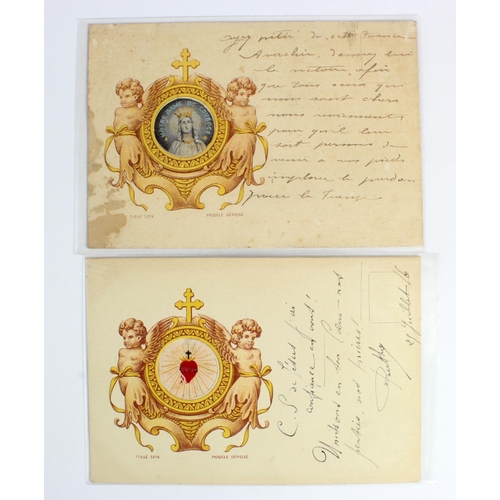 ayez pitié de cette France
donnez lui
la victoire, afin
que tous ceux qui
nous sont chers
nous reviennent
pour qu'il leur
soit permis de
venir a vos pieds
implorer le pardon
pour la France
NOTRE DAME DE
TISSÉ SOIE MODÈLE DÉPOSÉ
C. S. de Jésus j'ai
confiance en vous!
Unissons en Son Cœur nos
peines, nos prières!
27 Juillet 16
TISSÉ SOIE MODÈLE DÉPOSÉ